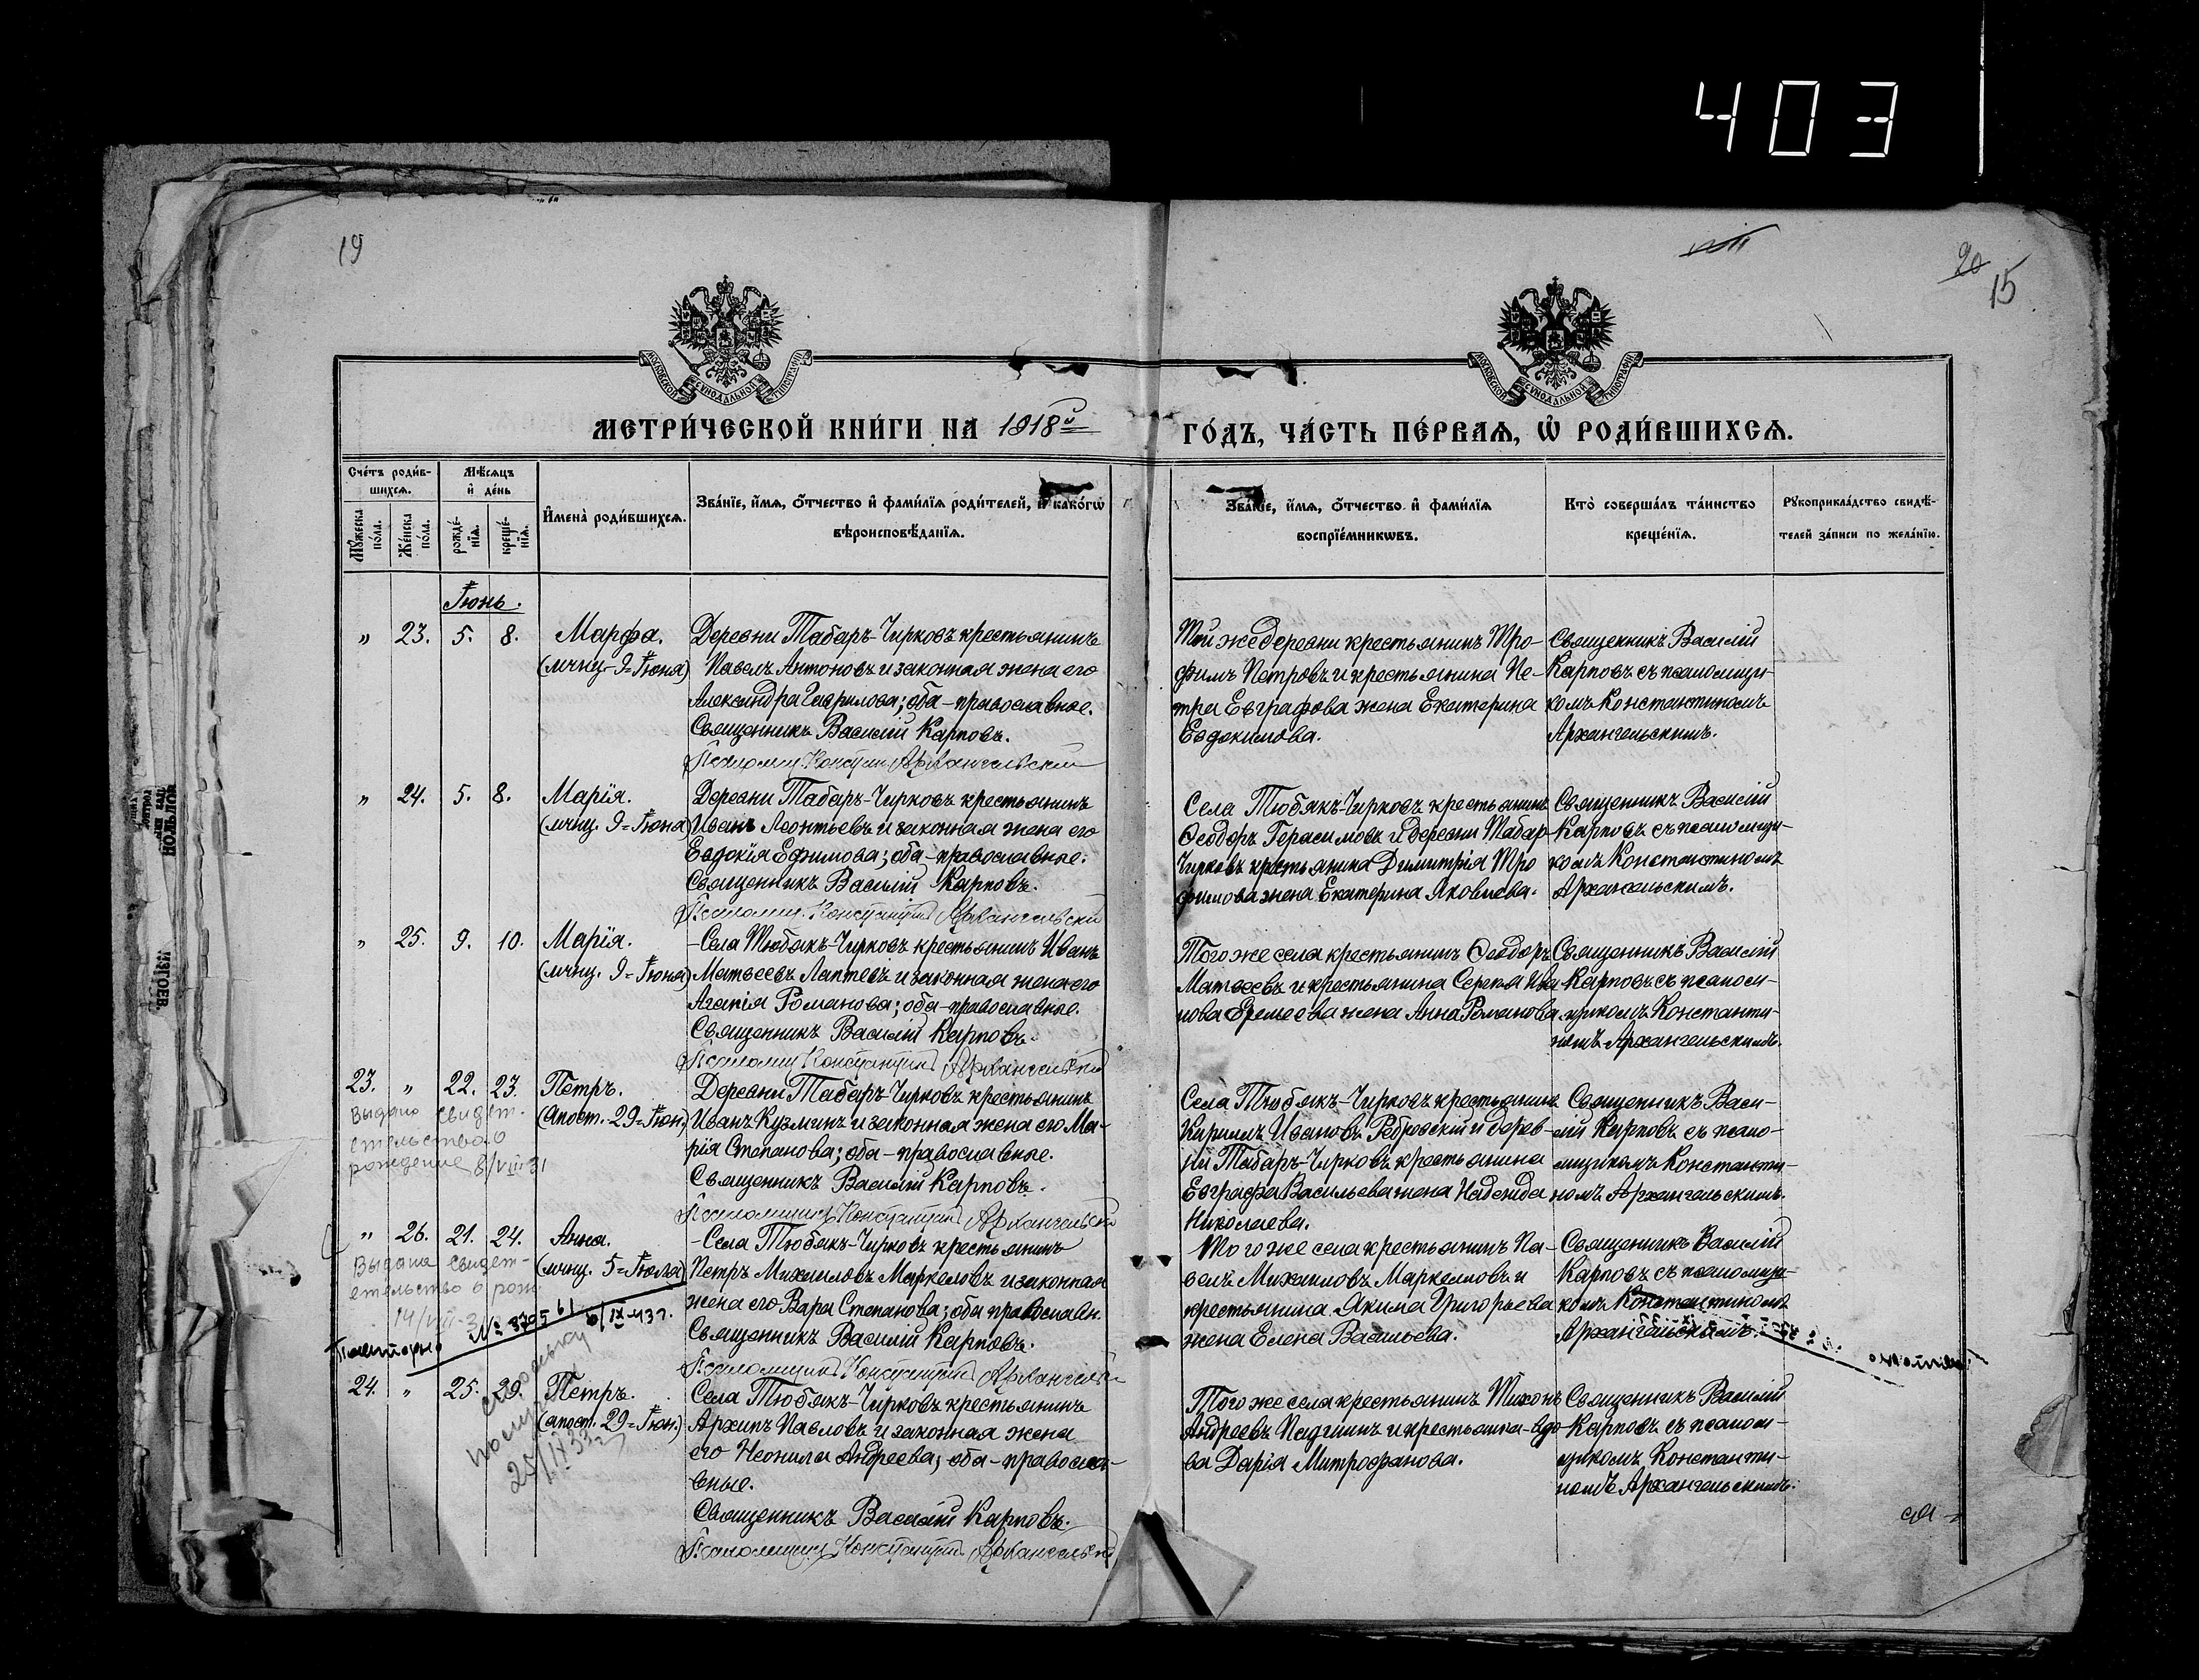 403
19
20
15
МОСКОВСКОЙ СѴНОДАЛЬНОЙ ТИПОГРАФІИ
МОСКОВСКОЙ СѴНОДАЛЬНОЙ ТИПОГРАФІИ
МЕТРИ́ЧЕСКОЙ КНИ́ГИ НА 1918й
ГО́ДЪ, ЧА́СТЬ ПЕ́РВАѦ, Ѡ РОДИ́ВШИХСѦ.
Сче́тъ роди́в-
шихсѧ.
Мѣ́сѧцъ
и҆ де́нь
Мꙋ́жеска по́ла.
Же́нска по́ла.
рожде́-
нїѧ.
креще́-
нїѧ.
И҆мена̀ роди́вшихсѧ.
Зва́нїе, и҆́мѧ, ѻ҆́тчество и҆ фами́лїѧ роди́телей, и҆ како́гѡ
вѣроисповѣ́данїѧ.
Зва́нїе, и҆́мѧ, ѻ҆́тчество и҆ фами́лїѧ
воспрїе́мникѡвъ.
Кто̀ соверша́лъ та́инство
креще́нїѧ.
Рꙋкоприкла́дство свидѣ́-
телей за́писи по жела́нїю.
Іюнь.
„ 23. 5. 8. Марфа.
(мчнц. 9=Іюня)
Деревни Табаръ-Чирковъ крестьянинъ
Павелъ Антоновъ и законная жена его
Александра Гаврилова; оба-православные.
Священникъ Василій Карповъ.
Псаломщ. Констан. Архангельскій
Той же деревни крестьянинъ Тро-
фимъ Петровъ и крестьянина Пе-
тра Евграфова жена Екатерина
Евдокимова.
Священникъ Василій
Карповъ съ псаломщи-
комъ Константиномъ
Архангельскимъ.
„ 24. 5. 8. Марія.
(мчнц. 9=Іюня)
Деревни Табаръ-Чирковъ крестьянинъ
Иванъ Леонтьевъ и законная жена его
Евдокія Ефимова; оба-православные.
Священникъ Василій Карповъ.
Псаломщ. Константинъ Архангельскій
Села Тюбякъ-Чирковъ крестьянинъ
Ѳеодоръ Герасимовъ и деревни Табар-
Чирковъ крестьянина Димитрія Тро
фимова жена Екатерина Яковлева.
Священникъ Василій
Карповъ съ псаломщи-
комъ Константиномъ
Архангельскимъ.
„ 25. 9. 10. Марія.
(мчнц. 9=Іюня)
-Села Тюбякъ-Чирковъ крестьянинъ Иванъ
Матвеевъ Лаптевъ и законная жена его
Агапія Романова; оба-православные.
Священникъ Василій Карповъ.
Псаломщ. Константинъ Архангельскій
Того же села крестьянинъ Ѳеодоръ
Матвеевъ и крестьянина Сергея Ива
нова Еремеева жена Анна Романова
Священникъ Василій
Карповъ съ псалом-
щикомъ Константи-
номъ Архангельскимъ.
23. „ 22. 23. Петръ.
(Апост. 29=Іюн.)
Выдано свидет-
ельство о
рождение 8/VIII 31
Деревни Табаръ-Чирковъ крестьянинъ
Иванъ Кузминъ и законная жена его Ма-
рія Степанова; оба-православные.
Священникъ Василій Карповъ.
Псаломщикъ Константинъ Архангельскій
Села Тюбякъ-Чирковъ крестьянинъ
Кириллъ Ивановъ Ребровскій и дерев-
ни Табаръ-Чирковъ крестьянина
Евграфа Васильева жена Надежда
Николаева.
Священникъ Васи-
лій Карповъ съ псало-
мщикомъ Константи-
номъ Архангельскимъ.
„ 26. 21. 24. Анна.
(мчнц. 5=Іюля)
Выдана свидет-
ельство о рож.
14/VIII-3
Повторно № 8705 61 6/IX-43г.
-Села Тюбякъ-Чирковъ крестьянинъ
Петръ Михаиловъ Маркеловъ и законная
жена его Вара Степанова; оба православн.
Священникъ Василій Карповъ.
Псаломщикъ Константинъ Архангельскій
-Того же села крестьянинъ Па-
велъ Михаиловъ Маркеловъ и
крестьянина Якима Григорьева
жена Елена Васильева.
Священникъ Василій
Карповъ съ псаломщи-
комъ Константиномъ
Архангельскимъ.
24. „ 25. 29. Петръ.
(апост. 29=Іюн.)
Села Тюбякъ-Чирковъ крестьянинъ
Архипъ Павловъ и законная жена
его Неонила Андреева; оба-правосла-
вные.
Священникъ Василій Карповъ.
Псаломщикъ Константинъ Архангельскій
Того же села крестьянинъ Тихонъ
Андреевъ Падгинъ и крестьянка-вдо-
ва Дарія Митрофанова.
Священникъ Василій
Карповъ съ псалом-
щикомъ Константи-
номъ Архангельскимъ.